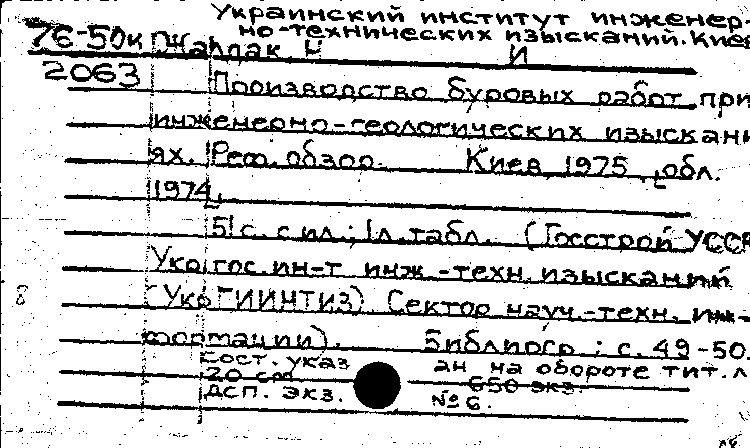 Украинский институт инженер-
но-технических изысканий. Киев
76-50к
2063
Производство буровых работ при
инженерно-геологических изыскани
ях. Реф. обзор. Киев, 1975, [обл.
1974].
51 с. с ил.; 1 л. табл. (Госстрой УССР
Укргос. ин-т инж.-техн. изысканий
(УкрГИИНТИЗ). Сектор науч.-техн. ин-
формации). Библиогр.: с. 49-50.
Сост. указ ан на обороте тит. л
20 см 650 экз.
ДСП. Экз. № 6.
8